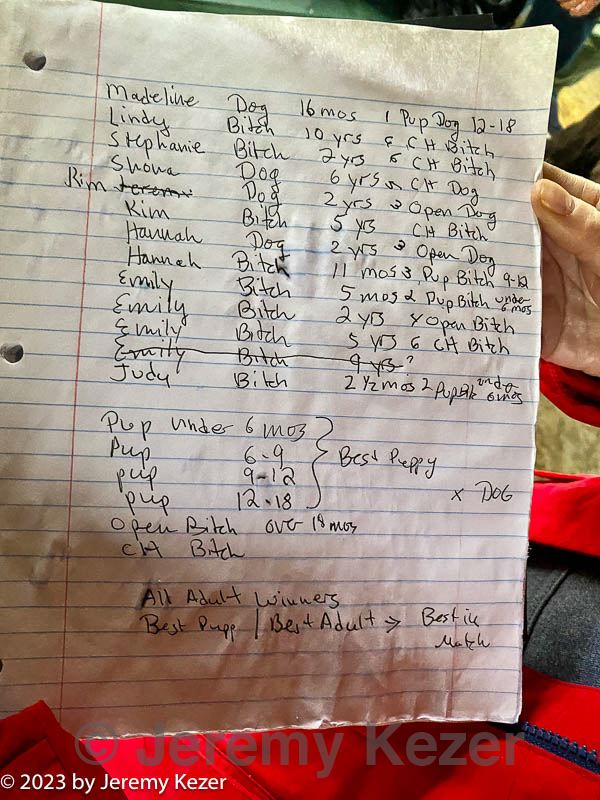 Madeline Dog 16 mos 1 Pup Dog 12-18
Lindy Bitch 10 yrs 6 CH Bitch
Stephanie Bitch 2 yrs 6 CH Bitch
Shona Dog 6 yrs CH Dog
Kim Jeremy Dog 2 yrs 3 Open Dog
Kim Bitch 5 yrs CH Bitch
Hannah Dog 2 yrs 3 Open Dog
Hannah Bitch 11 mos 3 Pup Bitch 9-12
Emily Bitch 5 mos 2 Pup Bitch under 6 mos
Emily Bitch 2 yrs 4 Open Bitch
Emily Bitch 5 yrs 6 CH Bitch
Emily Bitch 9 yrs ?
Judy Bitch 2 1/2 mos 2 Pup Bitch under 6 mos
Pup under 6 mos
Pup 6-9 Best Puppy
pup 9-12
pup 12-18 x DOG
Open Bitch over 18 mos
CH Bitch
All Adult Winners
Best Pupp | Best Adult → Best in
Match
© Jeremy Kezer
© 2023 by Jeremy Kezer